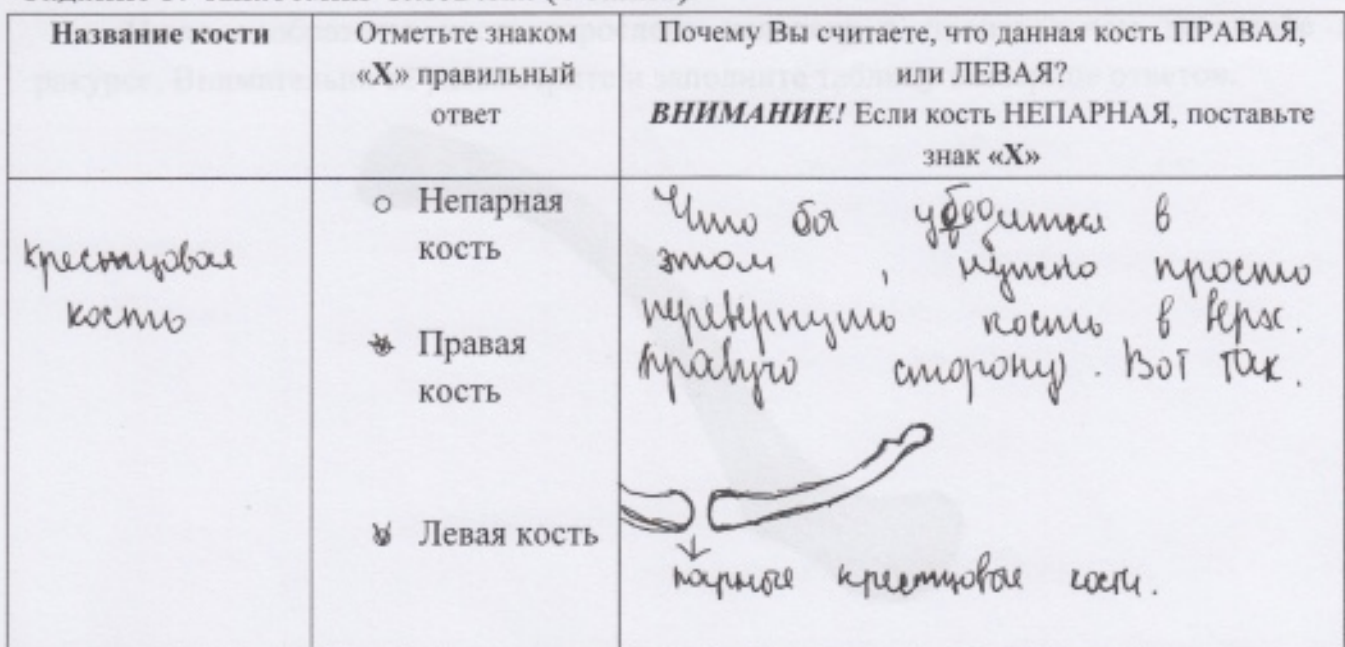 Название кости
Отметьте знаком
«Х» правильный
ответ
Почему Вы считаете, что данная кость ПРАВАЯ,
или ЛЕВАЯ?
ВНИМАНИЕ! Если кость НЕПАРНАЯ, поставьте
знак «Х»
Крестцовая
кость
Непарная
кость
Правая
кость
Левая кость
Что бы убедиться в
этом, нужно просто
перевернуть кость в верх.
правую сторону. Вот так.
парные крестцовые кости.